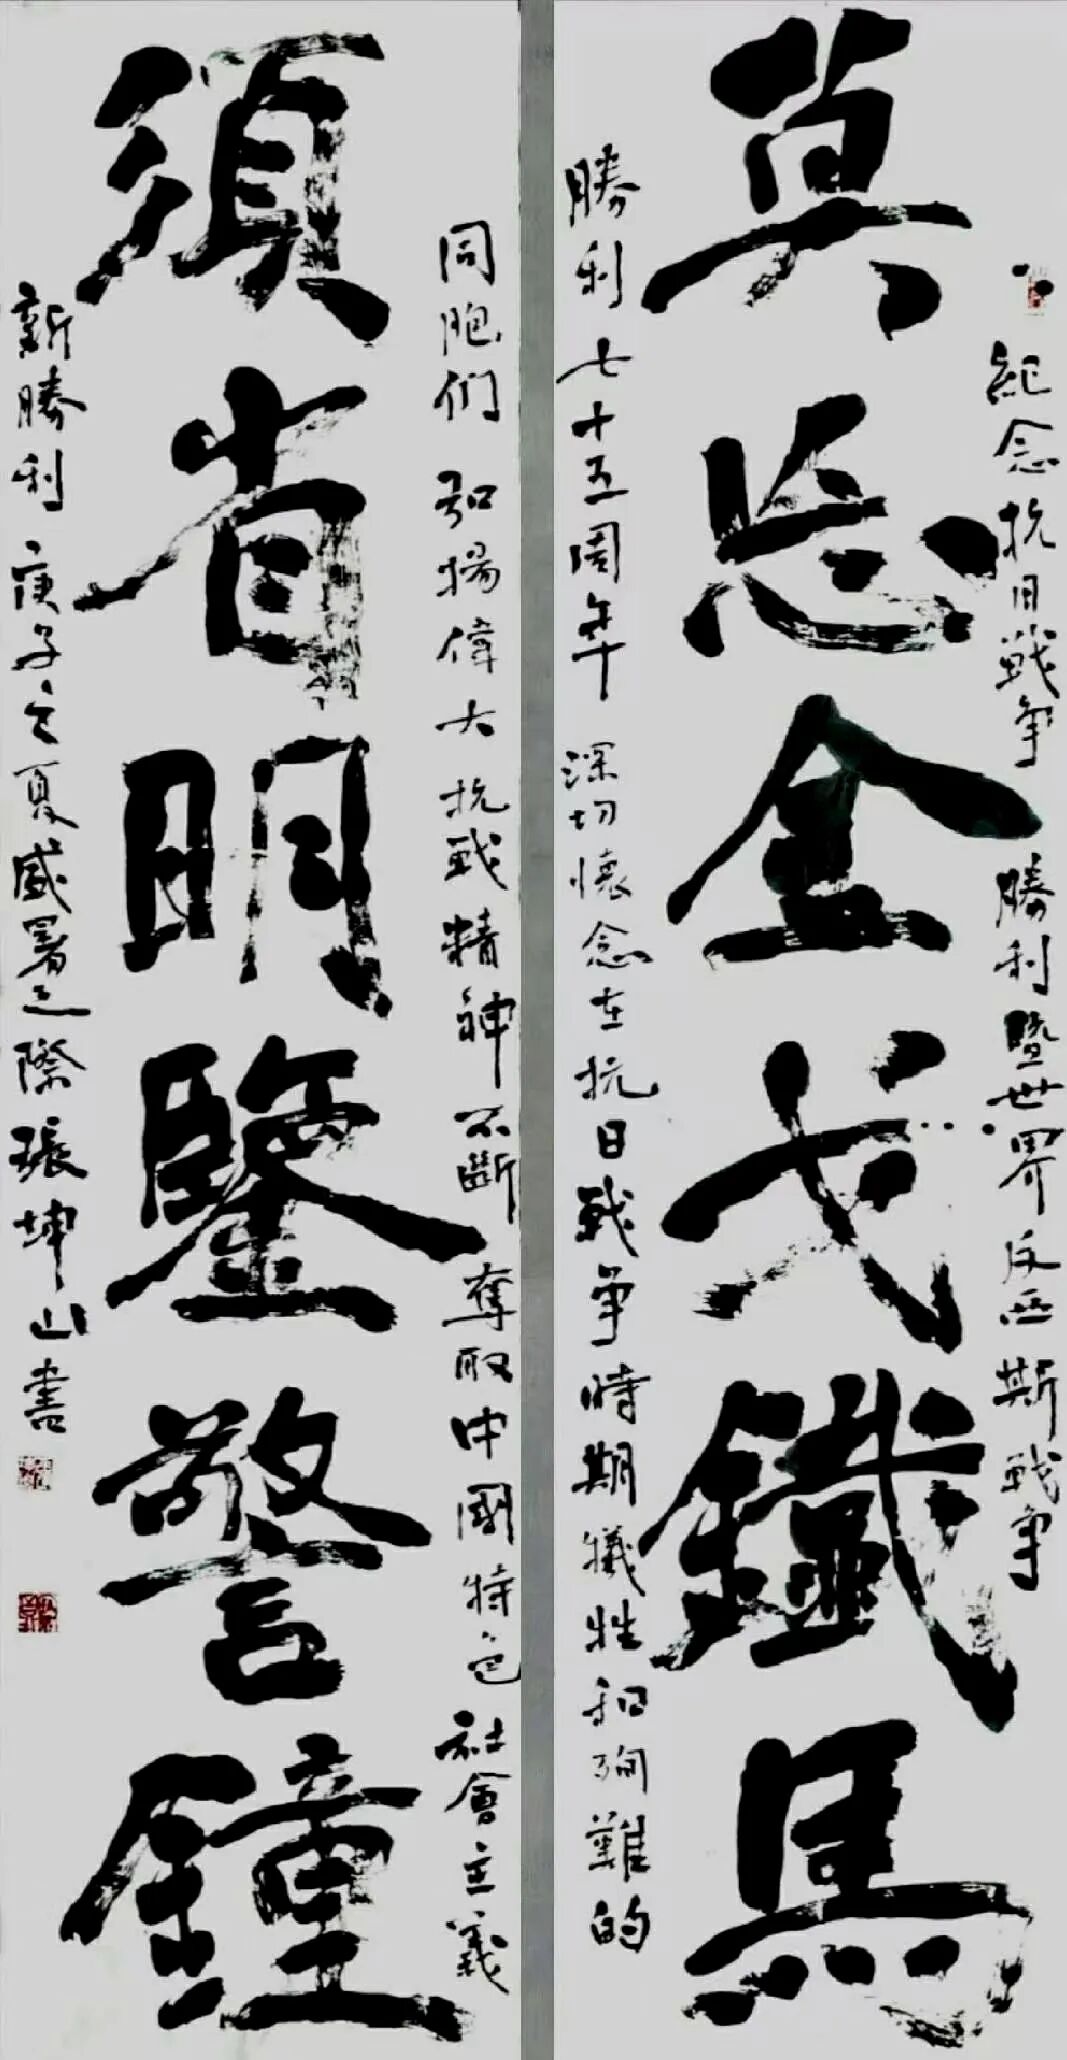 紀念抗日戰争勝利暨世界反西斯战争
莫忘金戈鐵馬
勝利七十五周年深切懷念在抗日战争時期犧牲和殉難的
同胞们弘揚偉大抗战精神不斷奪取中國特色社會主義
須省明鑒警鐘
新勝利庚子之夏盛暑之際張坤山書